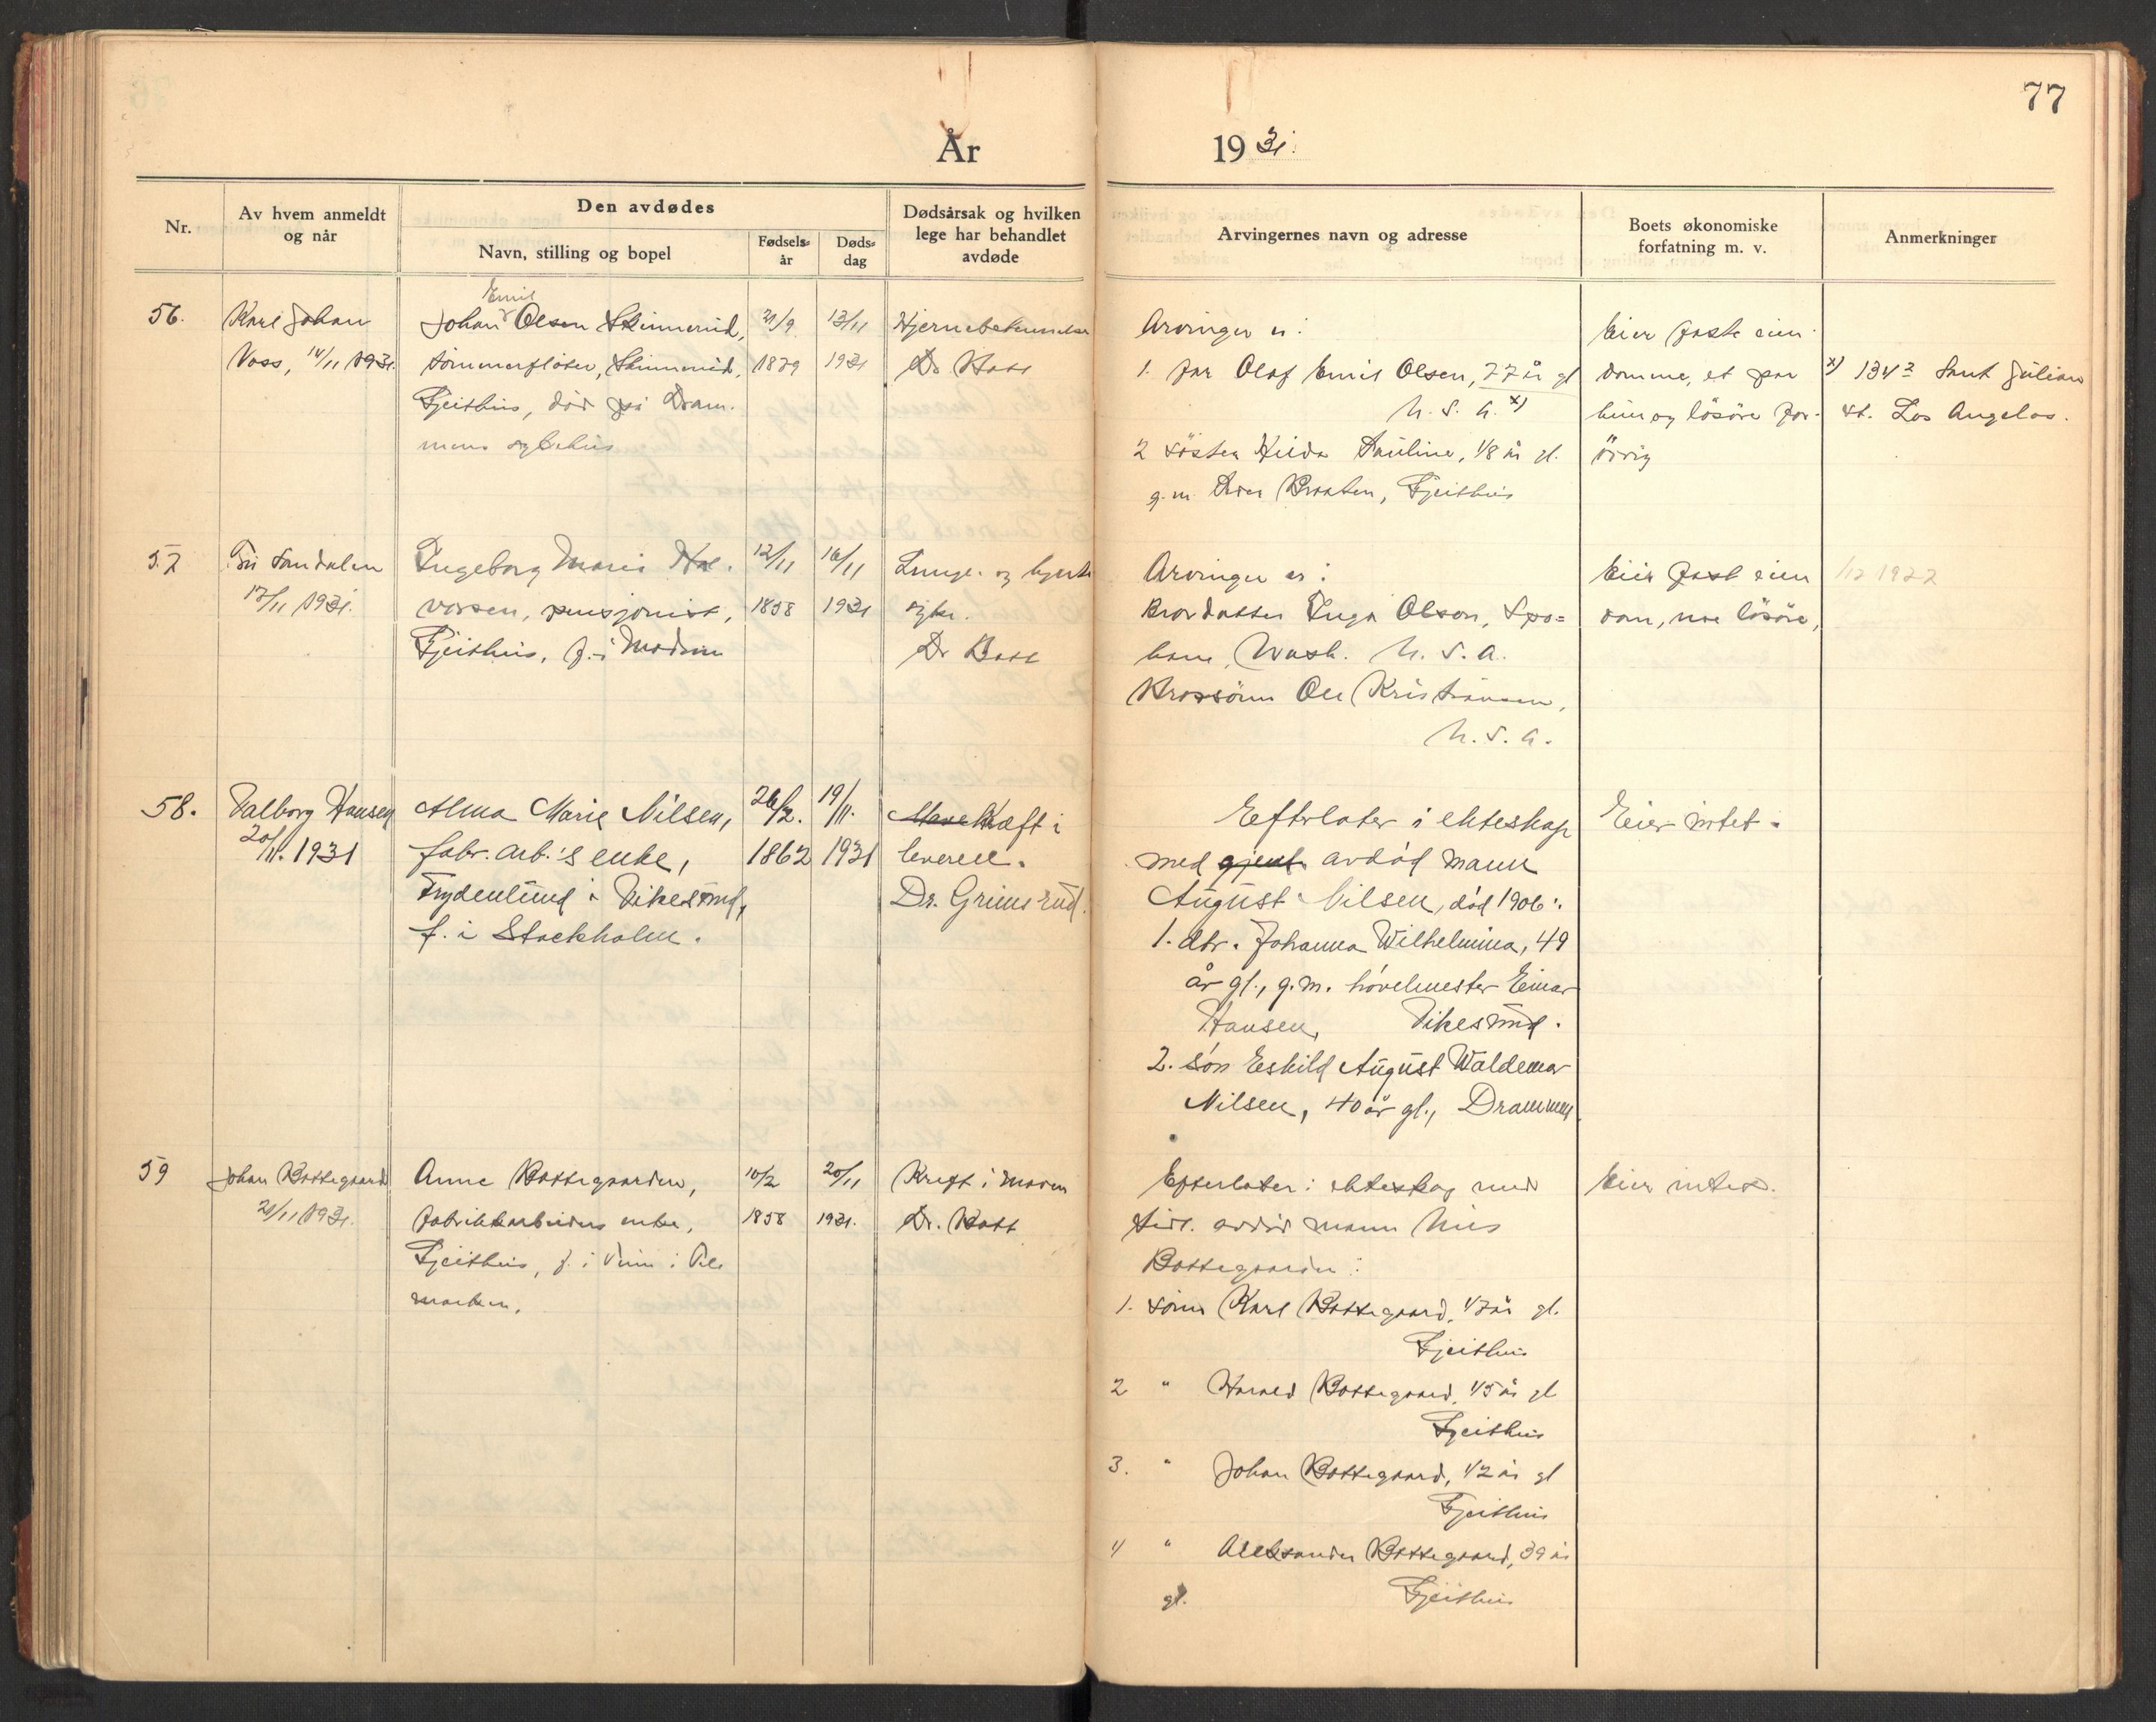 77
År 1931.
Nr.
Av hvem anmeldt
og når
Den avdødes
Navn, stilling og bopel
Fødsels-
år
Døds-
dag
Dødsårsak og hvilken
lege har behandlet
avdøde
Arvingernes navn og adresse
Boets økonomiske
forfatning m. v.
Anmerkninger
56.
Karl Johan
Voss, 14/11 1931.
Emil
Johan Olsen Skinnerud,
tömmerfløter, Skinnerud,
Gjeithus, död på Dram-
mens sykehus
21/9
13/11
1931
Hjernebetennelse
Dr
Arvinger er:
1. Far Olaf Emil Olsen, 77 år gl
U. S. A. x)
2 söster Hilda Pauline, 48 år gl.
g. m. Braaten, Gjeithus
Eier faste eien-
domme, et par
og lösöre for-
övrig
x) 134 2 Sant Julian
st. Los Angelos.
57
Sandalen
17/11 1931.
Ingeborg Marie Hal-
vorsen, pensjonist,
Gjeithus, f. i Modum
12/11
1858
16/11
1931
Lunge- og hjerte
syke.
Dr
Arvinger er:
Brordatter Inga Olson, Spo=
kane, Wash. U. S. A.
Brorsönn Ole Kristiansen,
U. S. A.
Eier fast eien
dom, noe lösöre,
58.
Valborg Hansen
20/11. 1931
Alma Marie Nilsen,
fabr. arb.'s enke,
Frydenlund i Vikesund,
f. i Stockholm.
26/2.
1862
19/11.
1931
Mave Kræft i
leveren.
Dr. Grimsrud.
Efterlater i ekteskap
med gjenl. avdöd mann
August Nilsen, död 1906:
1. dtr. Johanna Wilhelmina, 49
år gl., g. m. hövelmester Einar
Hansen, Vikesund.
2. sön Eskild August Waldemar
Nilsen, 40 år gl., Drammen
Eier intet.
59
Johan Bottegaard
21/11 1931.
Anne Bottegaarden,
fabrikkarbeiders enke,
Gjeithus, f. i Vinie i Tele
marken.
10/2
1858
20/11
1931.
Kreft i maven
Dr.
Efterlater i ekteskap med
tidl. avdöd mann Nils
Bottegaarden:
1. sönn Karl Bottegaard, 47 år gl.
Gjeithus
2 " Harald Bottegaard, 45 år gl
Gjeithus
3. " Johan Bottegaard, 42 år gl
Gjeithus
4 " Aleksander Bottegaard, 39 år
gl. Gjeithus
Eier intet.